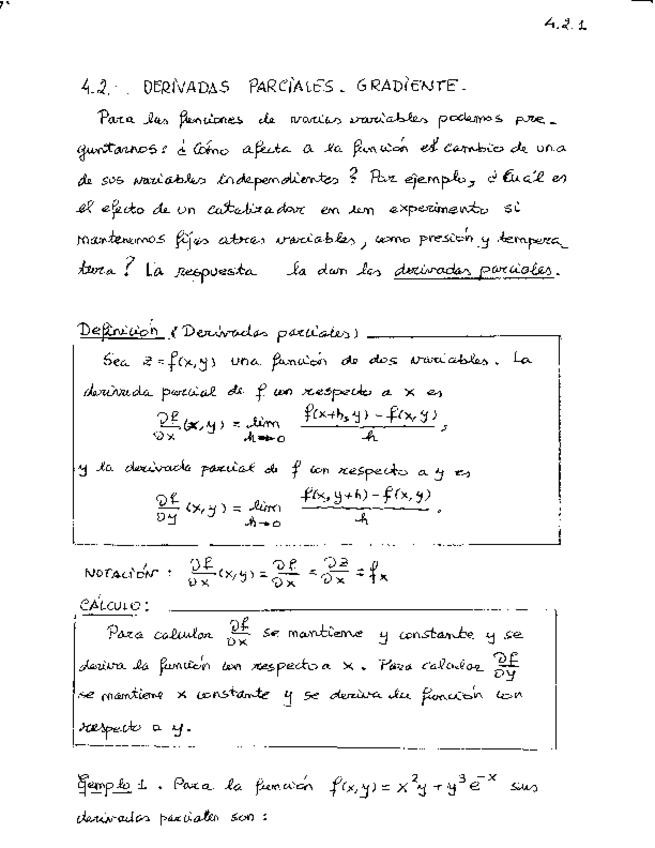 4.2.1
4.2. DERIVADAS PARCIALES. GRADIENTE.
Para las funciones de varias variables podemos pre-
guntarnos: ¿Cómo afecta a la función el cambio de una
de sus variables independientes? Por ejemplo, ¿Cuál es
el efecto de un catalizador en un experimento si
mantenemos fijas otras variables, como presión y tempera_
tura? La respuesta la dan las derivadas parciales.
Definición (Derivadas parciales)
Sea z = f(x,y) una función de dos variables. La
derivada parcial de f con respecto a x es
∂f/∂x (x,y) = lim h→0 (f(x+h,y) - f(x,y))/h ,
y la derivada parcial de f con respecto a y es
∂f/∂y (x,y) = lim h→0 (f(x,y+h) - f(x,y))/h .
NOTACIÓN : ∂f/∂x (x,y) = ∂f/∂x = ∂z/∂x = fx
CÁLCULO:
Para calcular ∂f/∂x se mantiene y constante y se
deriva la función con respecto a x. Para calcular ∂f/∂y
se mantiene x constante y se deriva la función con
respecto a y.
Ejemplo 1. Para la función f(x,y) = x²y + y³e⁻ˣ sus
derivadas parciales son :